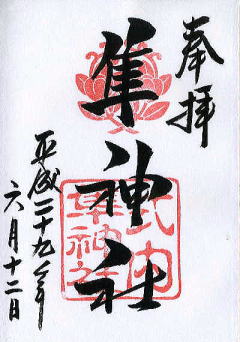 奉拝
隼神社
平成二十九年
六月十二日